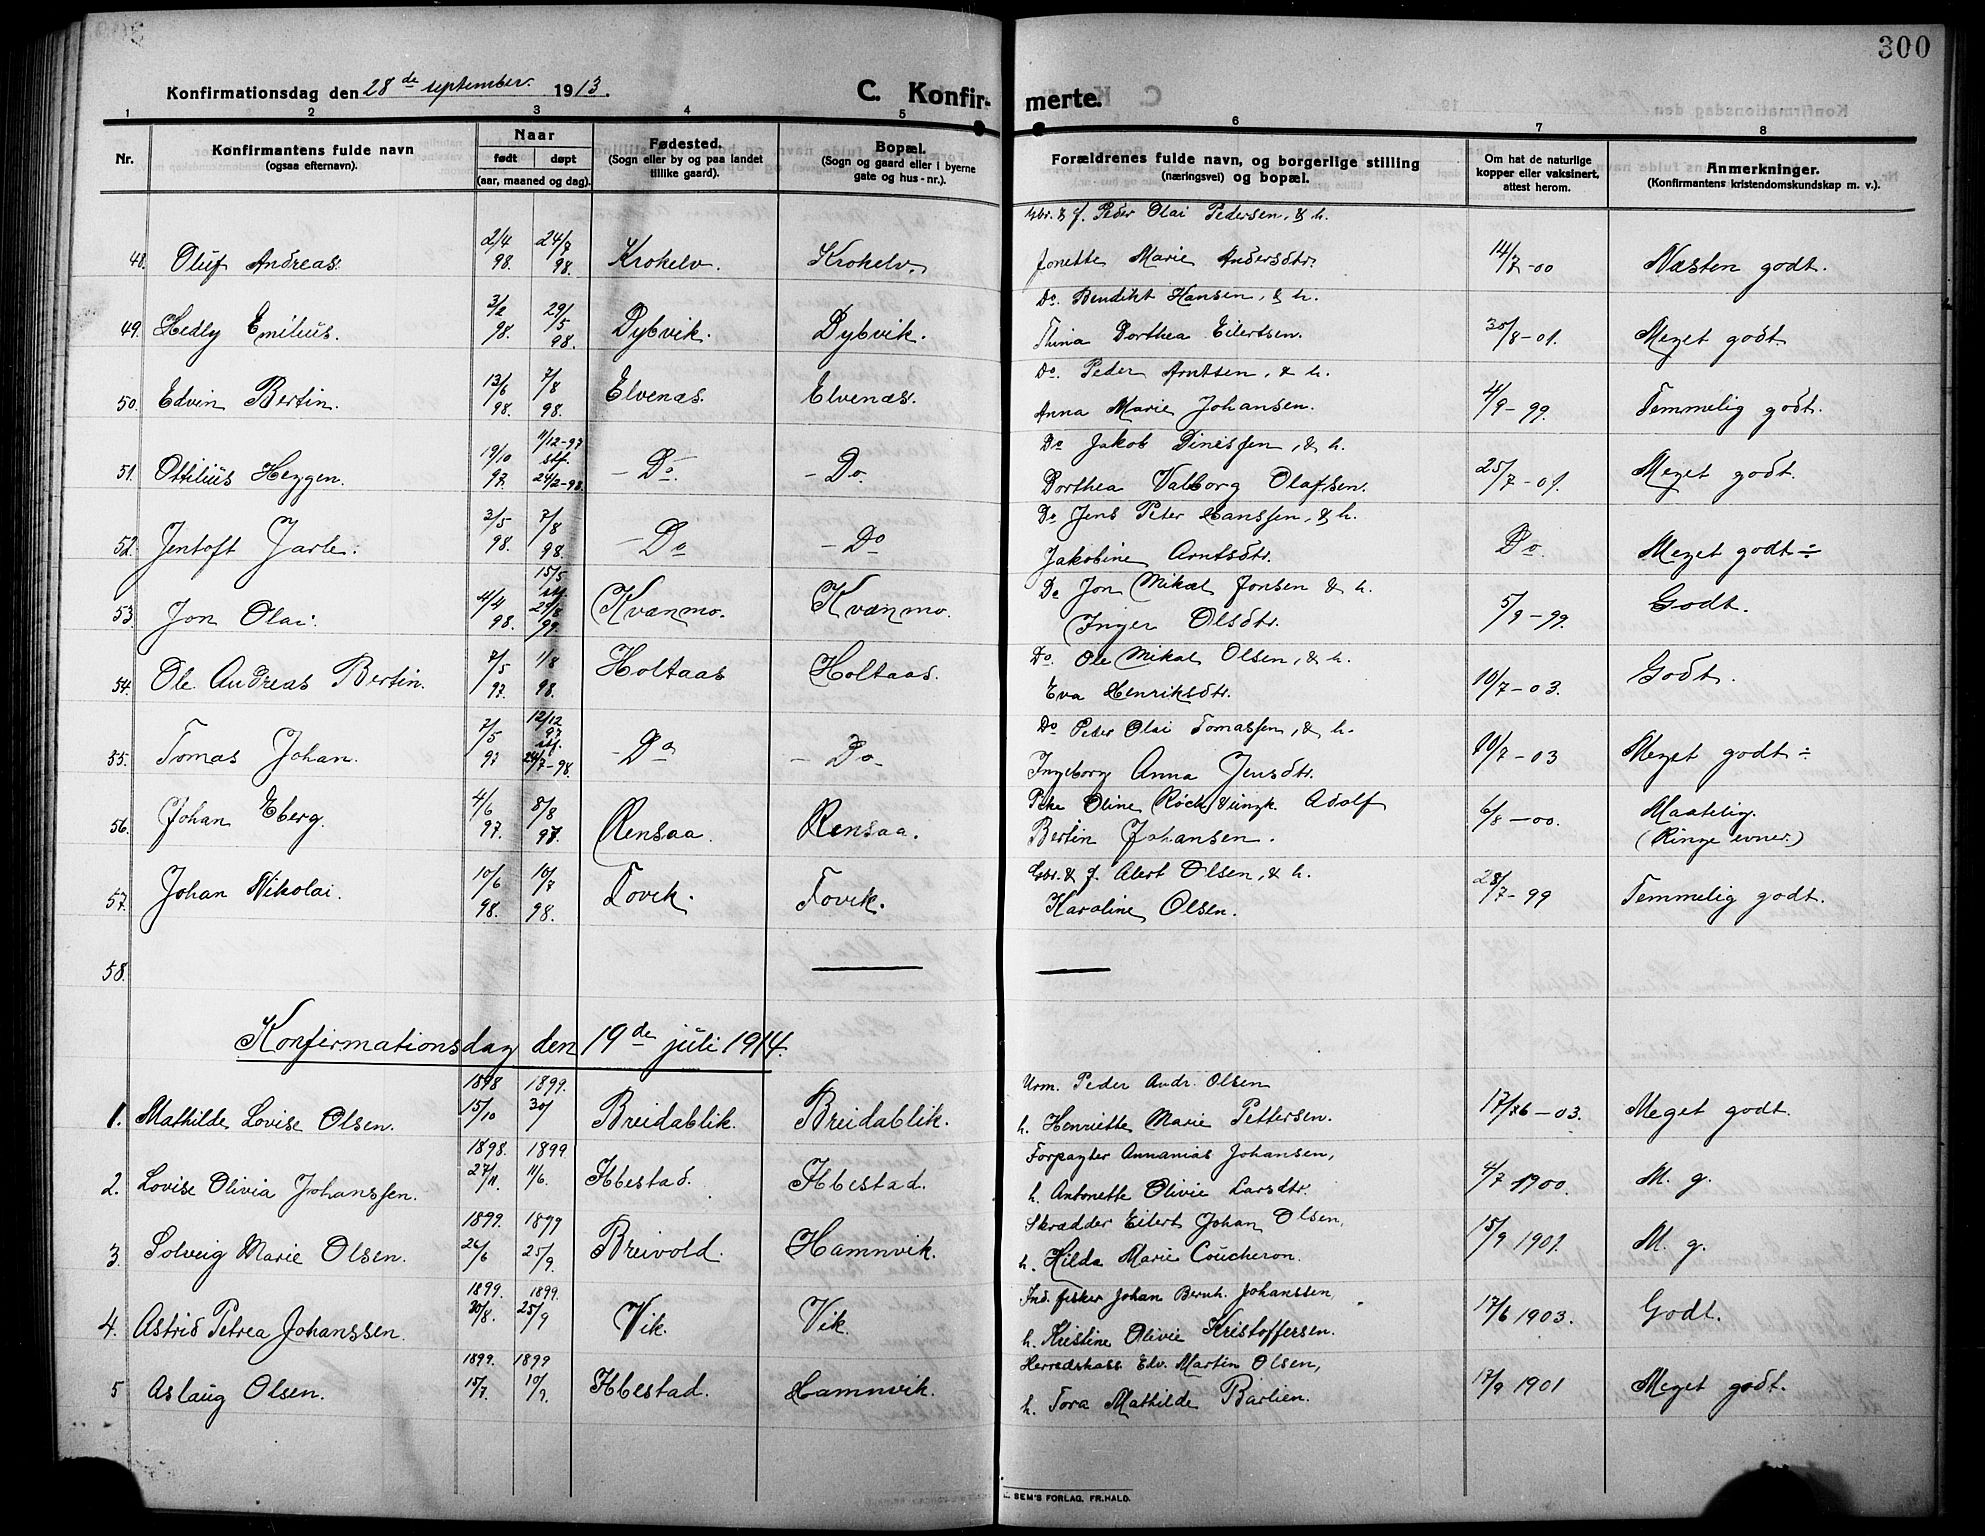 300
Konfirmationsdag den 28de september. 1913.
C. Konfirmerte.
1 2 3 4 5 6 7 8
Nr.
Konfirmantens fulde navn
(ogsaa efternavn).
Naar
født døpt
(aar, maaned og dag).
Fødested.
(Sogn eller by og paa landet
tillike gaard).
Bopæl.
(Sogn og gaard eller i byerne
gate og hus-nr.).
Forældrenes fulde navn, og borgerlige stilling
(næringsvei) og bopæl.
Om hat de naturlige
kopper eller vaksinert,
attest herom.
Anmerkninger.
(Konfirmantens kristendomskundskap m. v.).
Gbr. & f. Peder Olai Pedersen, & h.
48. Oluf Andreas. 2/4 98. 24/7 98. Krokelv. Krokelv. Jonette Marie Andersdtr. 14/7-00 Næsten godt.
Do. Bendikt Hansen, & h.
49. Hedly Emilius. 3/2 98. 29/5 98. Dybvik. Dybvik. Thina Dorthea Eilertsen. 30/8-01. Meget godt
Do. Peder Arntsen, & h.
50. Edvin Bertin. 13/6 98. 7/8 98. Elvenæs. Elvenæs. Anna Marie Johansen. 4/9-99. Temmelig godt.
Do Jakob Dinessen, & h.
51. Ottilius Heggen. 19/10 97. 11/12-97 stf. 24/2-98. - Do. - Do. Dorthea Valborg Olafsen. 25/7-01. Meget godt.
Do Jens Peter Hanssen, & h.
52. Jentoft Jarle. 3/5 98. 7/8 98. - Do - Do Jakobine Arntsdtr. Do. Meget godt ÷
Do Jon Mikal Jonsen & h.
53. Jon Olai. 4/4 98. 15/5 stf. 29/8 99. Kvænmo. Kvænmo. Inger Olsdtr. 5/9-99. Godt.
Do. Ole Mikal Olsen, & h.
54. Ole Andreas Bertin. 7/5 97. 1/8 98. Holtaas Holtaas. Eva Henriksdtr. 10/7-03. Godt.
Do Peter Olai Tomassen, & h.
55. Tomas Johan. 7/5 97 12/12 97 stf. 24/7-98. - Do - Do. Ingeborg Anna Jensdtr. 10/7-03 Meget godt ÷
Pke Oline Røck & ungk. Adolf
56. Johan Eberg. 4/6 97. 8/8 97. Rensaa. Rensaa. Bertin Johansen. 6/8-00. Maatelig.
(Ringe evner.)
Gbr. & f. Alert Olsen, & h.
57. Johan Nikolai. 10/6 98. 10/7 98. Tovik. Tovik. Karoline Olsen. 28/7-99 Temmelig godt.
58.
Konfirmationsdag den 19de juli 1914.
1898 1899. Urm. Peder Andr. Olsen
1. Mathilde Lovise Olsen. 15/10 30/ Breidablik. Breidablik. h. Henriette Marie Pettersen. 17/6-03. Meget godt.
1898. 1899 Forpagter Annanias Johansen,
2. Lovise Olivia Johanssen. 27/11. 11/6. Ibbestad. Ibbestad. h. Antonette Olivie Larsdtr. 4/7 1900. M. g.
1899. 1899 Skrædder Eilert Johan Olsen,
3. Solveig Marie Olsen. 26/6 25/9. Breivold. Hamnvik. h. Hilda Marie Coucheron. 15/9 1901. M. g.
1899. 1899. Ind. fisker Johan Bernh. Johanssen,
4. Astrid Petrea Johanssen. 20/8. 25/9 Vik. Vik. h. Kristine Olivie Kristoffersen. 17/6 1903. Godt.
1899. 1899 Herredskass Edv. Martin Olsen,
5 Aslaug Olsen. 15/7. 10/9. Ibbestad. Hamnvik. h. Tora Mathilde Barlien. 17/9 1901 Meget godt.
SEM'S FORLAG, FR.HALD.